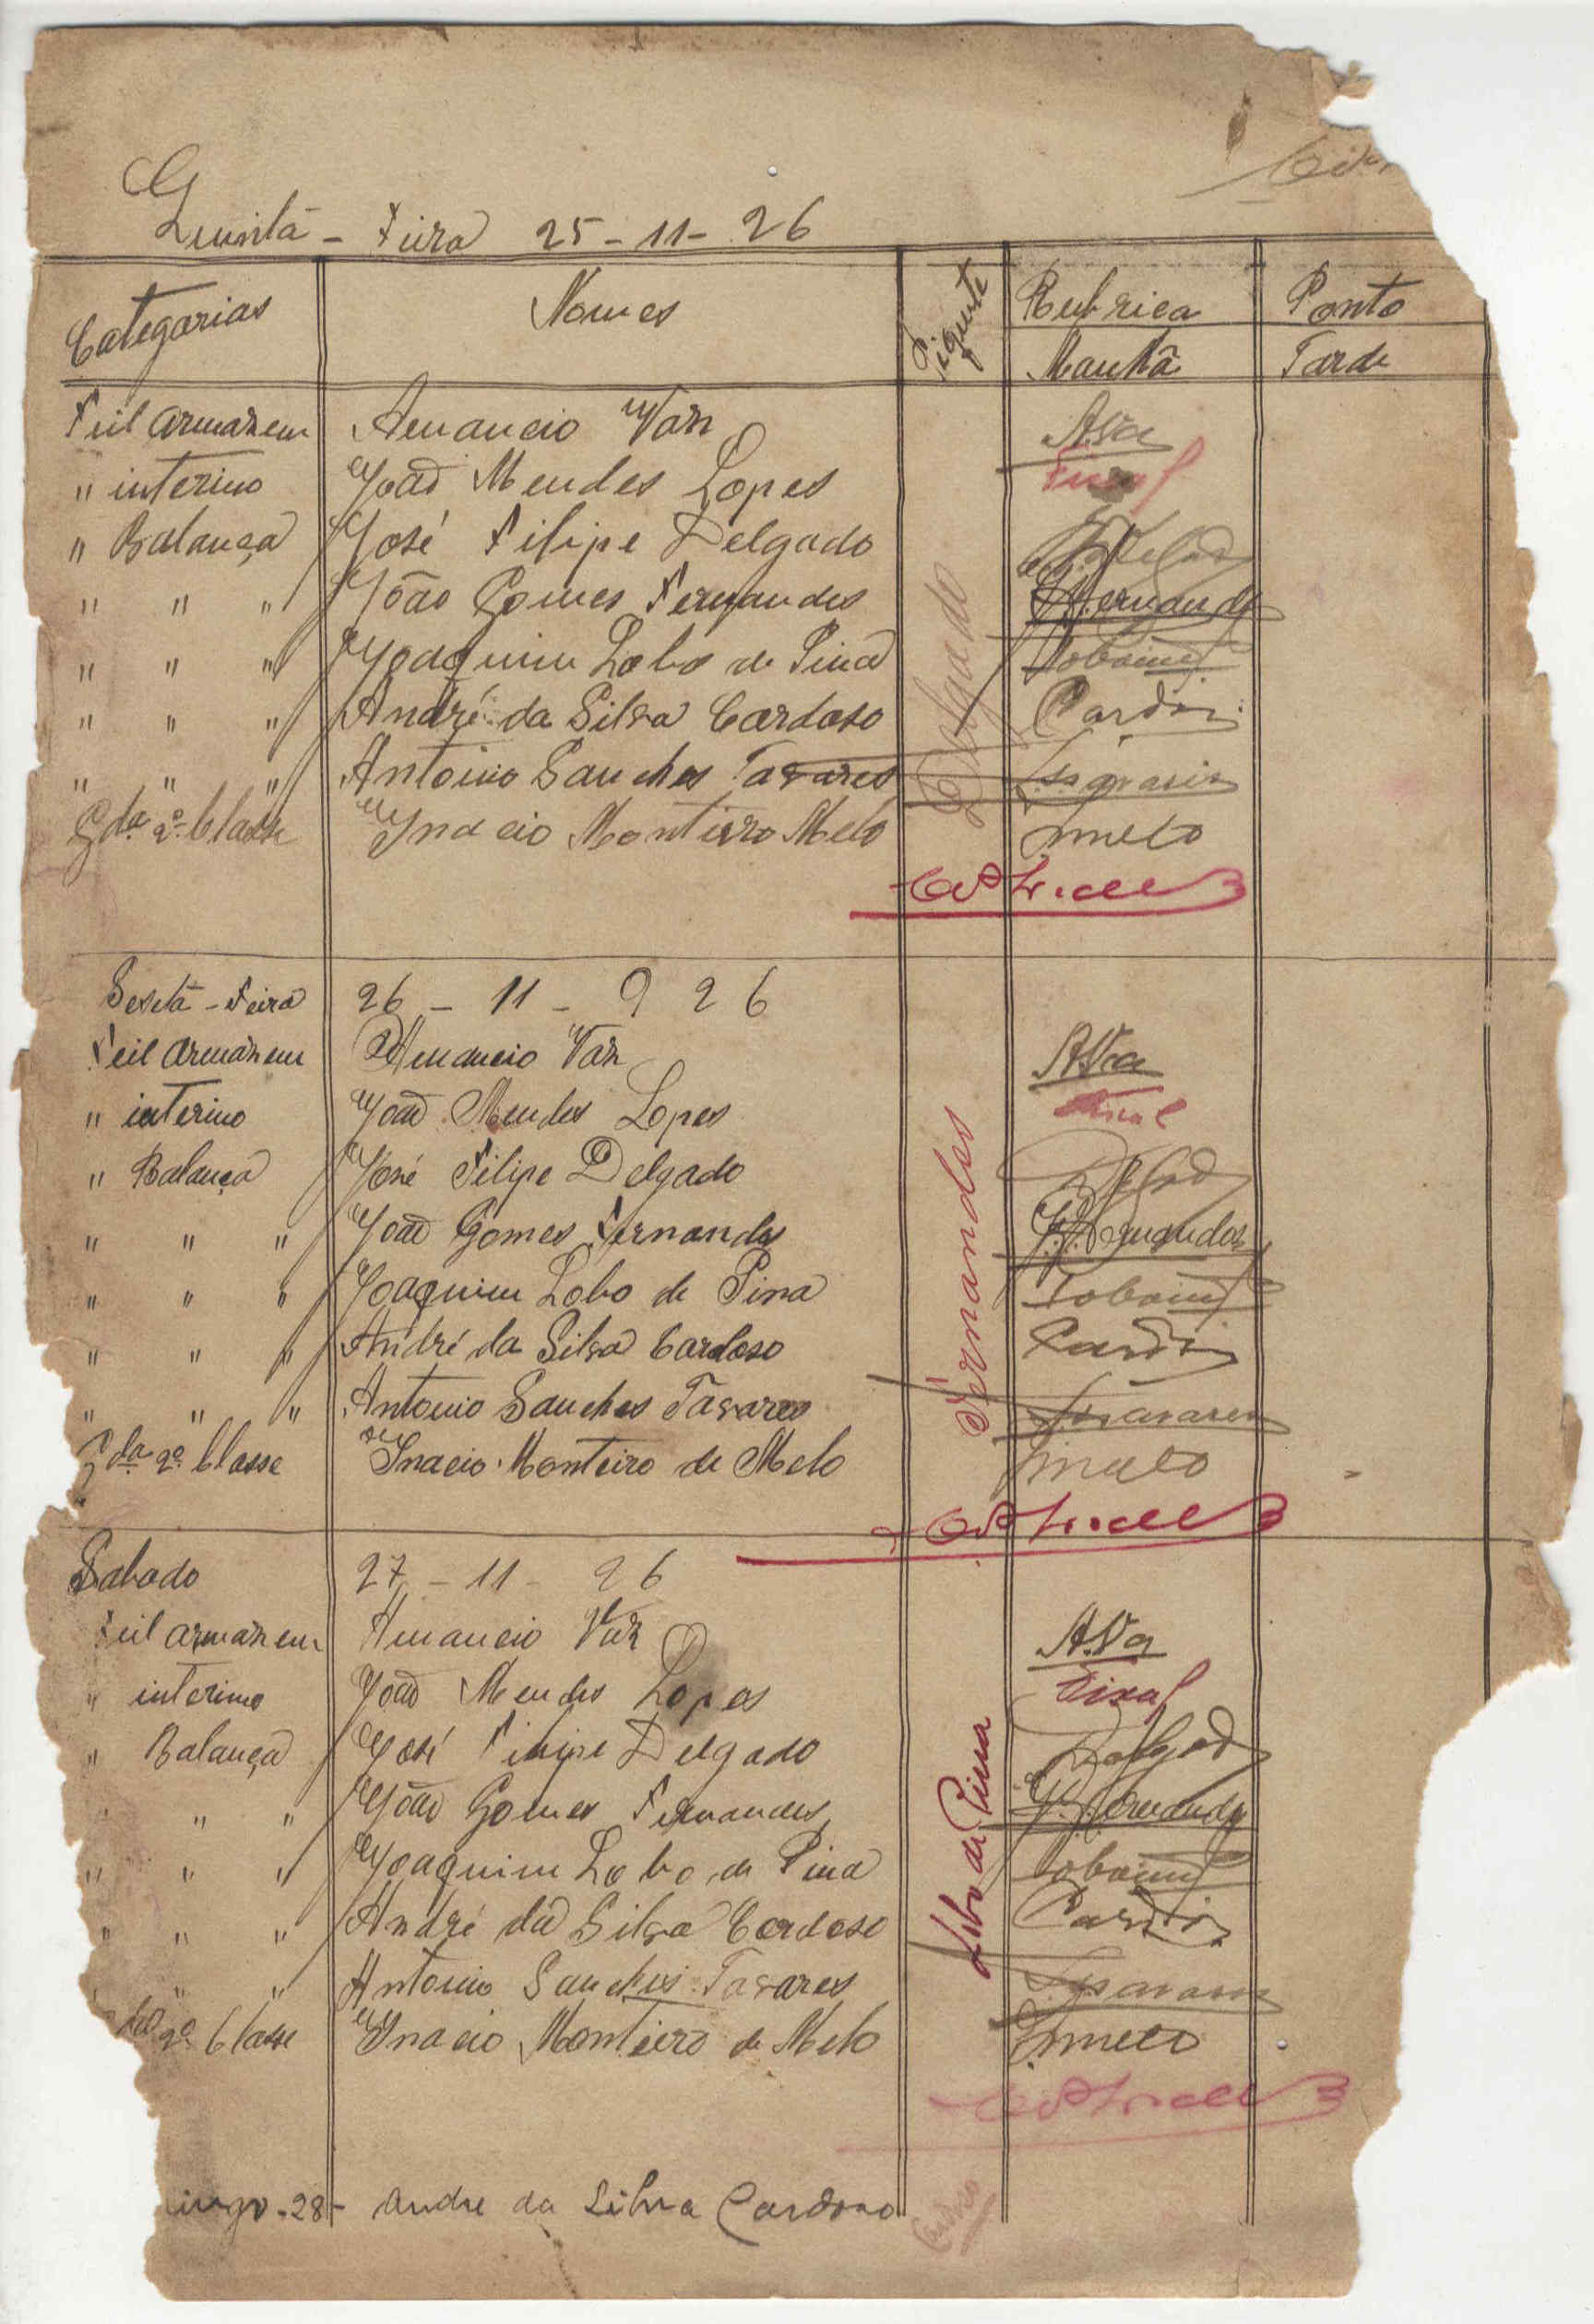 Quinta - Feira 25-11-26
Categorias Nomes Piquete Rubrica Ponto
Manhã Tarde
Fiel Armazem Amancio Vaz A.Va
" interino João Mendes Lopes Fiscal
" Balança José Filipe Delgado Delgado
" " " João Gomes Fernandes Fernandes
" " " Joaquim Lobo de Pina
" " " André da Silva Cardoso
" " " Antonio Sanches Tavares
Gda 2ª Classe Inacio Monteiro Melo Jmelo
Delgado
Sexta - Feira 26 - 11 - 926
Fiel Armazem Amancio Vaz A.Va
" interino João Mendes Lopes Fiscal
" Balança José Filipe Delgado
" " " João Gomes Fernandes Fernandes
" " " Joaquim Lobo de Pina
" " " André da Silva Cardoso
" " " Antonio Sanches Tavares
Gda 2ª Classe Inacio Monteiro de Melo Jmelo
Fernandes
Sabado 27 - 11 - 26
Fiel Armazem Amancio Vaz A.Va
" interino João Mendes Lopes
" Balança José Filipe Delgado Delgad
" " João Gomes Fernandes Fernandes
" " " Joaquim Lobo de Pina
" " " André da Silva Cardoso
" " Antonio Sanches Tavares
da 2ª Classe Inacio Monteiro de Melo Jmelo
Lobo de Pina
ingo - 28 - Andre da Silva Cardoso Cardoso